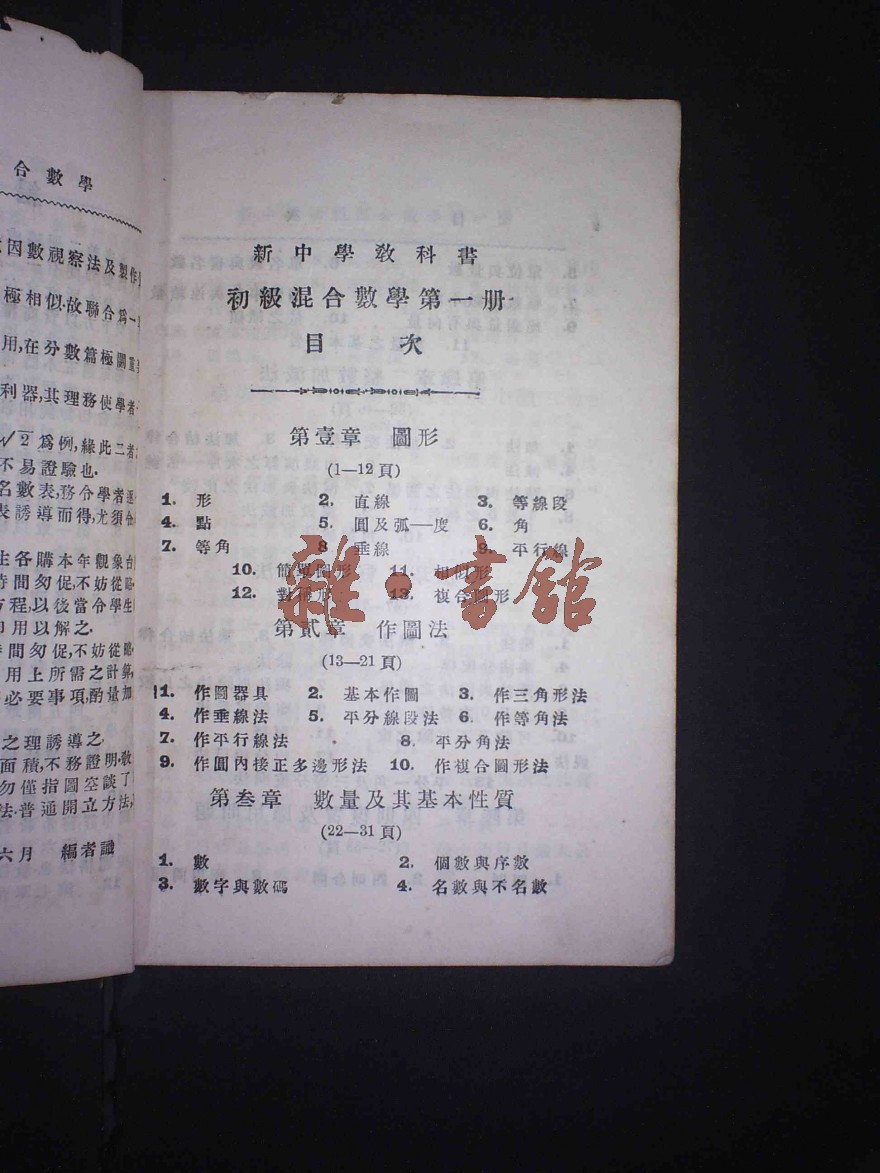 合數學
因數視察法及製作
極相似.故聯合爲一
用,在分數篇極關重
利器,其理務使學者
√2爲例,緣此二者
不易證驗也.
名數表,務令學者逐
表誘導而得,尤須令
生各購本年觀象台
時間匆促,不妨從略.
方程,以後當令學生
即用以解之.
時間匆促,不妨從略
用上所需之計算,
必要事項,酌量加
之理誘導之.
面積,不務證明,敬
勿僅指圖空談了
法.普通開立方法,
六月 編者識
新中學教科書
初級混合數學第一册
目 次
第壹章 圖形
(1—12頁)
1. 形 2. 直線 3. 等線段
4. 點 5. 圓及弧—度 6. 角
7. 等角 8 垂線 9. 平行線
10. 簡單圖形 11. 相似形
12. 對稱形 13. 複合圖形
雜·書館
第貳章 作圖法
(13—21頁)
1. 作圖器具 2. 基本作圖 3. 作三角形法
4. 作垂線法 5. 平分線段法 6. 作等角法
7. 作平行線法 8. 平分角法
9. 作圓內接正多邊形法 10. 作複合圖形法
第叁章 數量及其基本性質
(22—31頁)
1. 數 2. 個數與序數
3. 數字與數碼 4. 名數與不名數